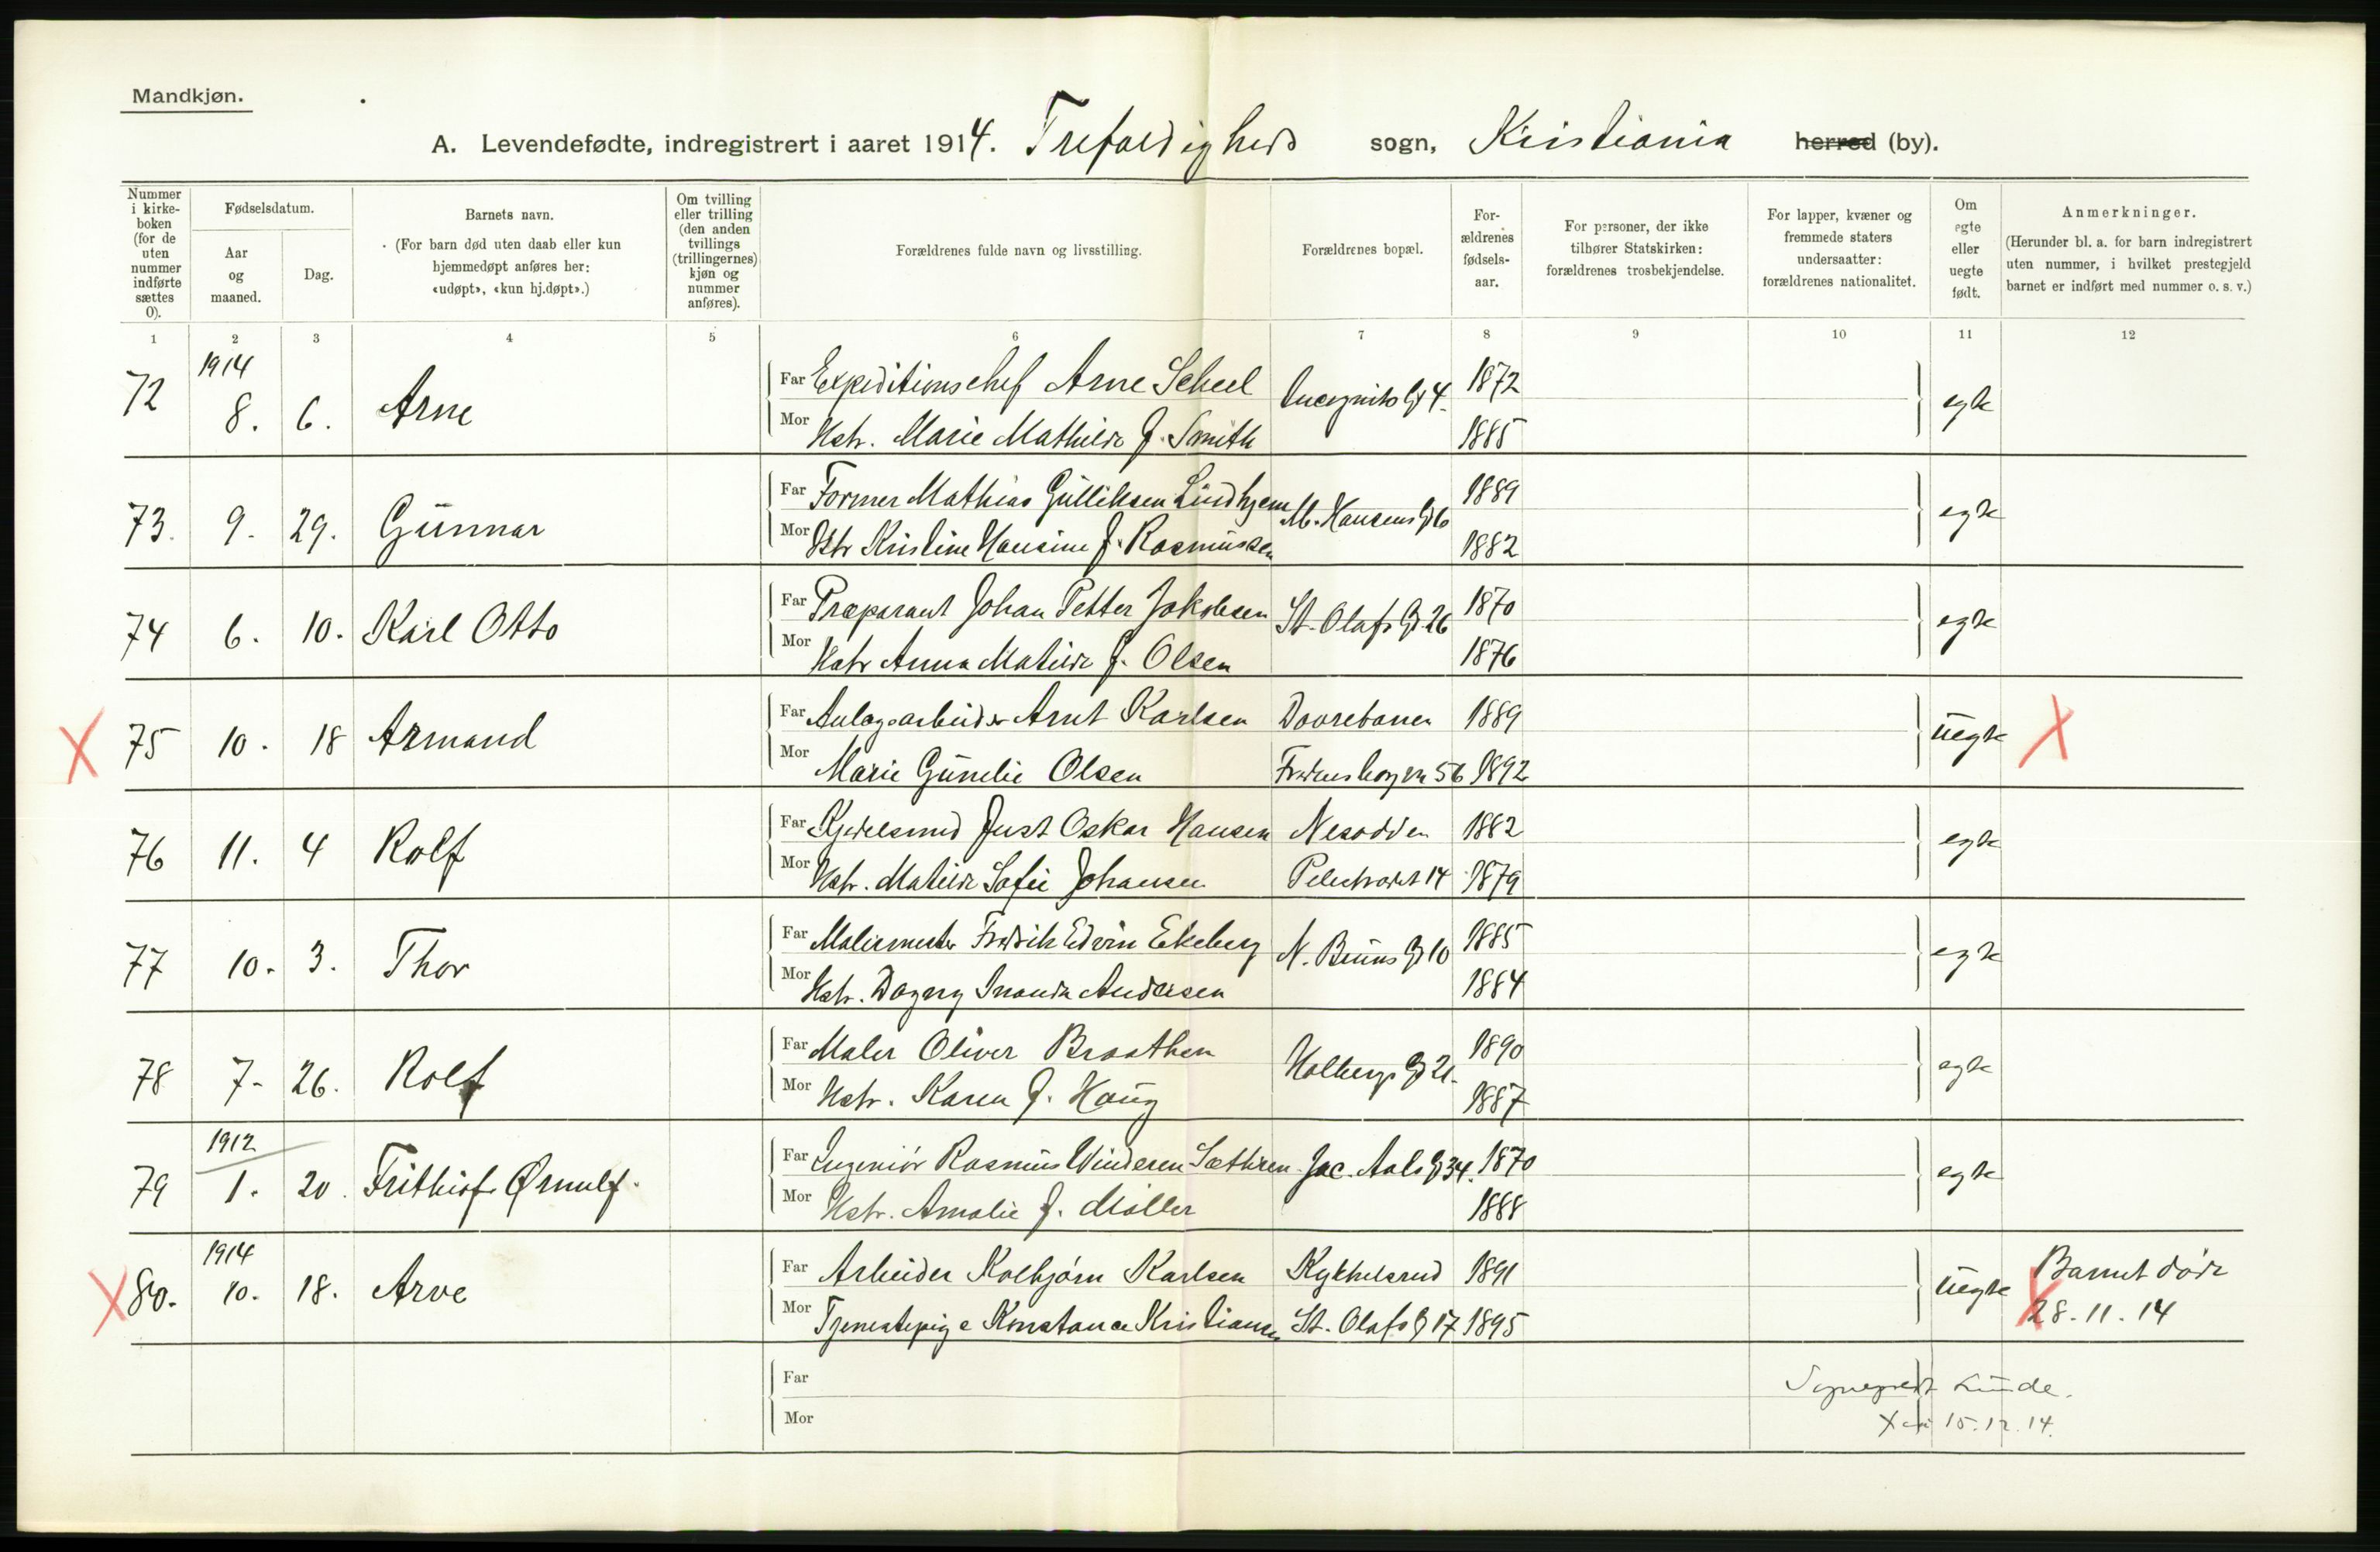 Mandkjøn.
A. Levendefødte, indregistrert i aaret 1914. Trefoldigheds sogn, Kristiania herred (by).
Nummer i kirke-boken (for de uten nummer indførte sættes 0).
Fødselsdatum.
Aar og maaned.
Dag.
Barnets navn.
(For barn død uten daab eller kun hjemmedøpt anføres her: «udøpt», «kun hj.døpt».)
Om tvilling eller trilling (den anden tvillings (trillingernes) kjøn og nummer anføres).
Forældrenes fulde navn og livsstilling.
Forældrenes bopæl.
For-ældrenes fødsels-aar.
For personer, der ikke tilhører Statskirken: forældrenes trosbekjendelse.
For lapper, kvæner og fremmede staters undersaatter: forældrenes nationalitet.
Om egte eller uegte født.
Anmerkninger.
(Herunder bl. a. for barn indregistrert uten nummer, i hvilket prestegjeld barnet er indført med nummer o. s. v.)
1 2 3 4 5 6 7 8 9 10 11 12
72 1914 8. 6. Arne Far Expeditionschef Arne Scheel Incognito Gd 4. 1872 egte
Mor Hstr. Marie Mathilde f. Smith 1885
73. 9. 29. Gunnar Far Former Mathias Gulliksen Lindhjem M. Hansens Gd 6 1889 egte
Mor Hstr Kristine Hansine f. Rasmussen 1882
74 6. 10. Karl Otto Far Præparant Johan Petter Jakobsen St. Olafs Gd. 26 1870 egte
Mor Hstr Anna Matilde f. Olsen 1876
X 75 10. 18 Armand Far Anlægsarbeider Arnt Karlsen Dovrebanen 1889 uegte X
Mor Marie Gunelie Olsen 56 1892
76 11. 4 Rolf Far Kjedelsmed Just Oskar Hansen Nesodden 1882 egte
Mor Hstr. Matilde Sofie Johansen Pilestrædet 14 1879
77 10. 3. Thor Far Malermester Fredrik Edvin Ekeberg N. Bruns Gd 10 1885 egte
Mor Hstr. Dagny Inanda Andersen 1884
78 7. 26. Rolf Far Maler Oliver Braathen Holbergs Gd 21. 1890 egte
Mor Hstr. Karen f. Haug 1887
79 1912 1. 20. Frithiof Ørnulf. Far Ingeniør Rasmus Winderen Sæthren Jac. Aals Gd 34. 1870 egte
Mor Hstr. Amalie f. Møller 1888
X 80. 1914 10. 18. Arve Far Arbeider Kolbjørn Karlsen Kykkelsrud 1891 uegte Barnet døde
Mor Tjenestepige Konstance Kristiansen St. Olafs G 17 1895 X 28.11.14
Far
Mor
Sogneprest Linde.
X 15.12.14.